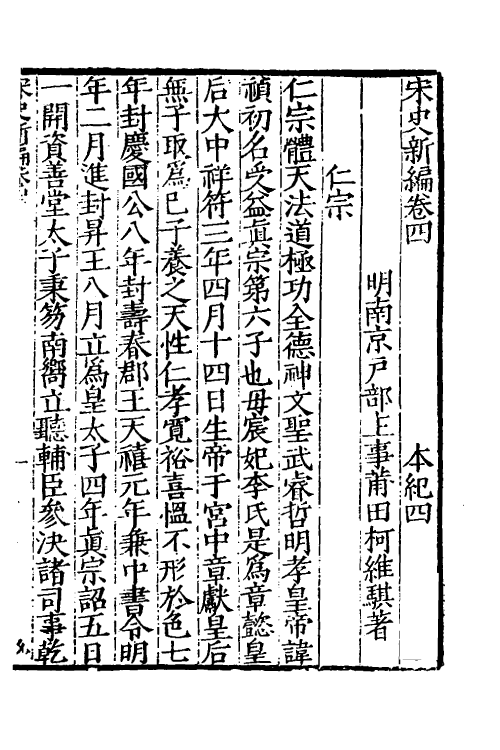 宋史新編卷四 本紀四
明南京戸部主事莆田柯維騏著
仁宗
仁宗體天法道極功全德神文聖武睿哲明孝皇帝諱
禎初名受益眞宗第六子也母宸妃李氏是爲章懿皇
后大中祥符三年四月十四日生帝于宮中章獻皇后
無子取爲已子養之天性仁孝寬裕喜慍不形於色七
年封慶國公八年封壽春郡王天禧元年兼中書令明
年二月進封昇王八月立爲皇太子四年眞宗詔五日
一開資善堂太子秉笏南嚮立聽輔臣參決諸司事乾
宋史新編卷四 一